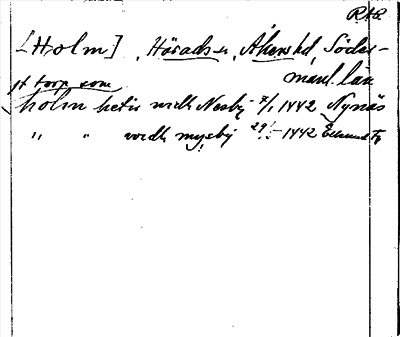 RAP.
[Holm] , Härads-n , Åkers hd, Söder-
manl. län
jt torp som
holm hetir widh Nesby 7/1 1442 Nynäs
" " vidh mysby 29/1 1442 Eklund Fp